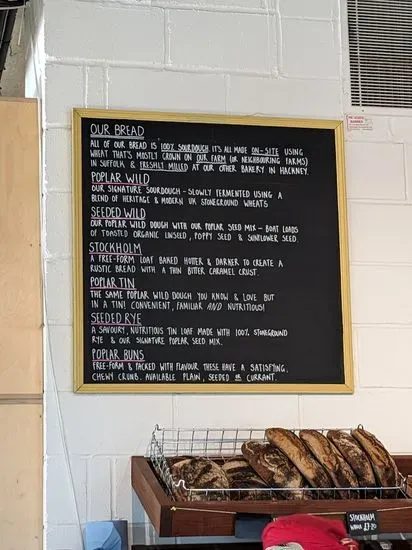 OUR BREAD
ALL OF OUR BREAD IS 100% SOURDOUGH. IT'S ALL MADE ON-SITE USING
WHEAT THAT'S MOSTLY GROWN ON OUR FARM (OR NEIGHBOURING FARMS)
IN SUFFOLK & FRESHLY MILLED AT OUR OTHER BAKERY IN HACKNEY.
POPLAR WILD
OUR SIGNATURE SOURDOUGH - SLOWLY FERMENTED USING A
BLEND OF HERITAGE & MODERN UK STONEGROUND WHEATS
SEEDED WILD
OUR POPLAR WILD DOUGH WITH OUR POPLAR SEED MIX - BOAT LOADS
OF TOASTED ORGANIC LINSEED, POPPY SEED & SUNFLOWER SEED.
STOCKHOLM
A FREE-FORM LOAF BAKED HOTTER & DARKER TO CREATE A
RUSTIC BREAD WITH A THIN BITTER CARAMEL CRUST.
POPLAR TIN
THE SAME POPLAR WILD DOUGH YOU KNOW & LOVE BUT
IN A TIN! CONVENIENT, FAMILIAR AND NUTRITIOUS!
SEEDED RYE
A SAVOURY, NUTRITIOUS TIN LOAF MADE WITH 100% STONEGROUND
RYE & OUR SIGNATURE POPLAR SEED MIX.
POPLAR BUNS
FREE-FORM & PACKED WITH FLAVOUR THESE HAVE A SATISFYING,
CHEWY CRUMB. AVAILABLE PLAIN, SEEDED OR CURRANT.
STOCKHOLM
WHOLE